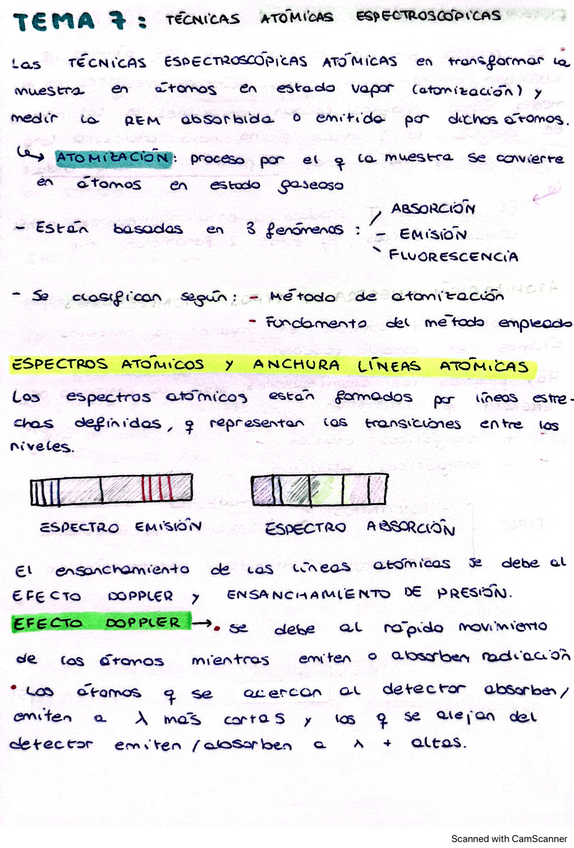 TEMA 7: TÉCNICAS ATÓMICAS ESPECTROSCÓPICAS
Las TÉCNICAS ESPECTROSCÓPICAS ATÓMICAS en transformar la
muestra en átomos en estado vapor (atomización) y
medir la REM absorbida o emitida por dichos átomos.
↳ ATOMIZACIÓN: proceso por el q la muestra se convierte
en átomos en estado gaseoso
- Están basadas en 3 fenómenos: / ABSORCIÓN
- EMISIÓN
\ FLUORESCENCIA
- Se clasifican según: - Método de atomización
- Fundamento del método empleado
ESPECTROS ATÓMICOS Y ANCHURA LÍNEAS ATÓMICAS
Los espectros atómicos están formados por líneas estre-
chas definidas, q representan las transiciones entre los
niveles.
ESPECTRO EMISIÓN ESPECTRO ABSORCIÓN
El ensanchamiento de las líneas atómicas se debe al
EFECTO DOPPLER y ENSANCHAMIENTO DE PRESIÓN.
EFECTO DOPPLER → • se debe al rápido movimiento
de los átomos mientras emiten o absorben radiación
• Los átomos q se acercan al detector absorben/
emiten a λ más cortas y los q se alejan del
detector emiten/absorben a λ + altas.
Scanned with CamScanner